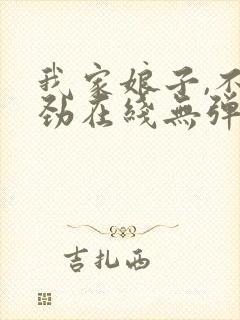 我家娘子,不
劲在线無彈
吉扎西